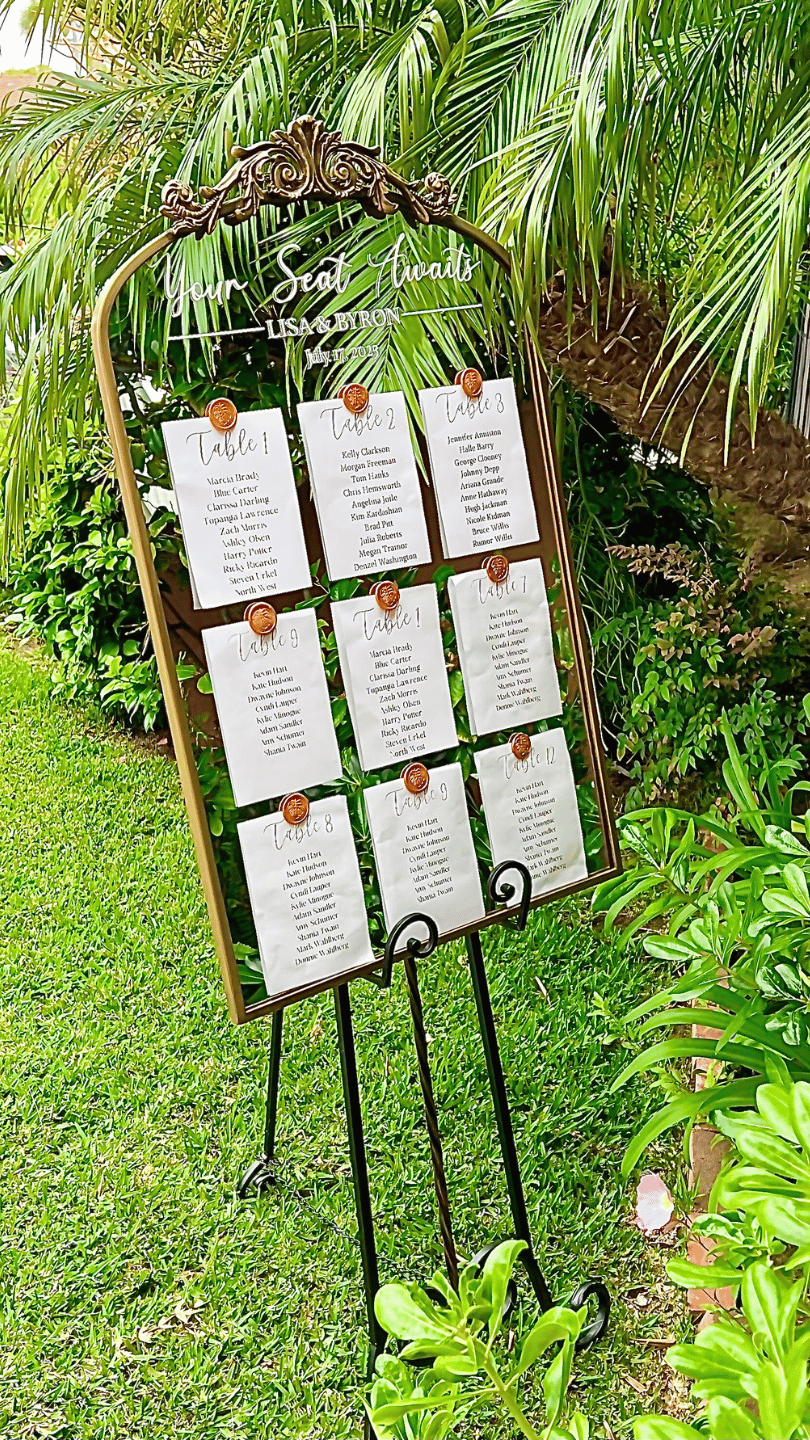 Your Seat Awaits
LISA & BYRON
July 17, 2025
Table 1
Marcia Brady
Blue Carter
Clarissa Darling
Topanga Lawrence
Zach Morris
Ashley Olsen
Harry Potter
Ricky Ricardo
Steven Urkel
North West
Table 2
Kelly Clarkson
Morgan Freeman
Tom Hanks
Chris Hemsworth
Angelina Jolie
Kim Kardashian
Brad Pitt
Julia Roberts
Megan Trainor
Denzel Washington
Table 3
Jennifer Anniston
Halle Barry
George Clooney
Johnny Depp
Ariana Grande
Anne Hathaway
Hugh Jackman
Nicole Kidman
Bruce Willis
Rumor Willis
Table 9
Kevin Hart
Kate Hudson
Dwayne Johnson
Cyndi Lauper
Kylie Minogue
Adam Sandler
Amy Schumer
Shania Twain
Table 1
Marcia Brady
Blue Carter
Clarissa Darling
Topanga Lawrence
Zach Morris
Ashley Olsen
Harry Potter
Ricky Ricardo
Steven Urkel
North West
Table 7
Kevin Hart
Kate Hudson
Dwayne Johnson
Cyndi Lauper
Kylie Minogue
Adam Sandler
Amy Schumer
Shania Twain
Mark Wahlberg
Donnie Wahlberg
Table 8
Kevin Hart
Kate Hudson
Dwayne Johnson
Cyndi Lauper
Kylie Minogue
Adam Sandler
Amy Schumer
Shania Twain
Mark Wahlberg
Donnie Wahlberg
Table 9
Kevin Hart
Kate Hudson
Dwayne Johnson
Cyndi Lauper
Kylie Minogue
Adam Sandler
Amy Schumer
Shania Twain
Table 12
Kevin Hart
Kate Hudson
Dwayne Johnson
Cyndi Lauper
Kylie Minogue
Adam Sandler
Amy Schumer
Shania Twain
Mark Wahlberg
Wahlberg